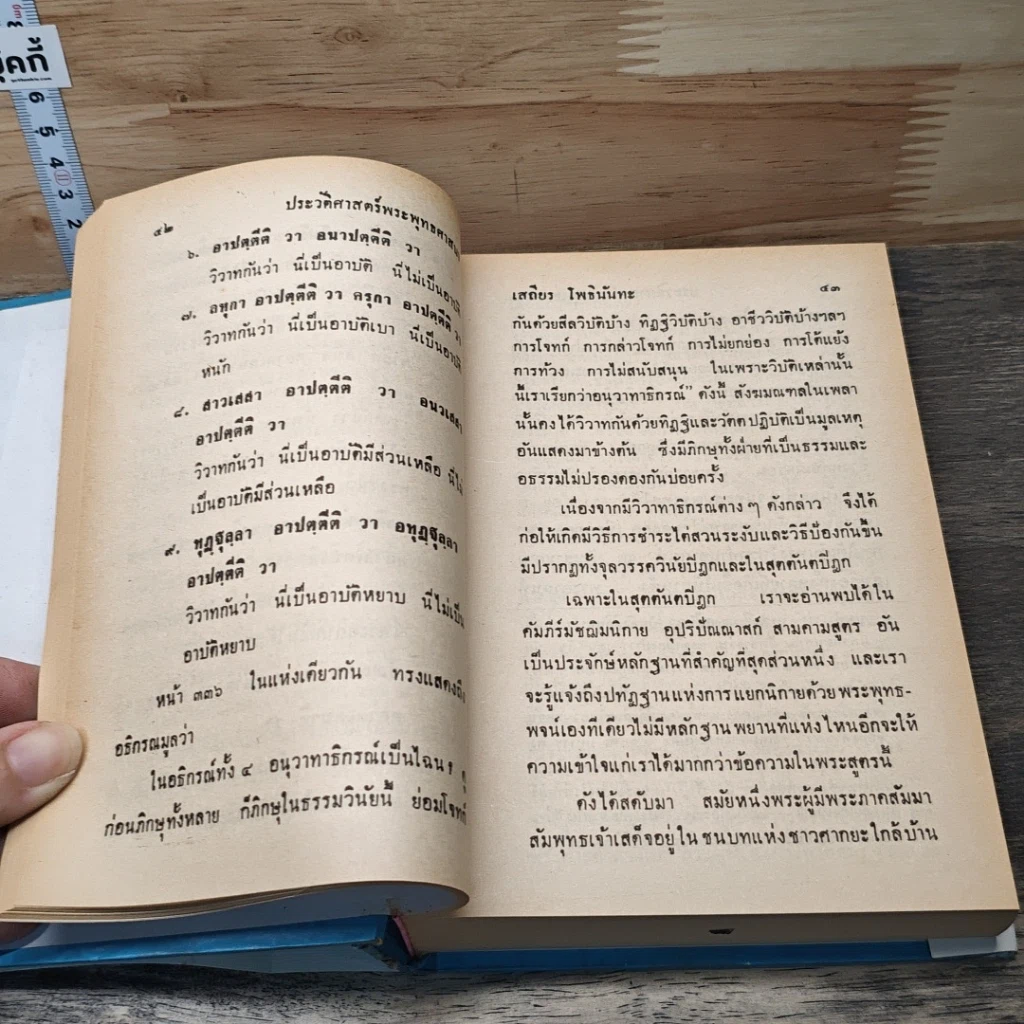 ๔๒ ประวัติศาสตร์พระพุทธศาสนา
๖. อาปตฺตีติ วา อนาปตฺตีติ วา
วิวาทกันว่า นี่เป็นอาบัติ นี่ไม่เป็นอาบัติ
๗. ลหุกา อาปตฺตีติ วา ครุกา อาปตฺตีติ วา
วิวาทกันว่า นี่เป็นอาบัติเบา นี่เป็นอาบัติ
หนัก
๘. สาวเสสา อาปตฺตีติ วา อนวเสสา
อาปตฺตีติ วา
วิวาทกันว่า นี่เป็นอาบัติมีส่วนเหลือ นี่ไม่
เป็นอาบัติมีส่วนเหลือ
๙. ทุฏฺฐุลฺลา อาปตฺตีติ วา อทุฏฺฐุลฺลา
อาปตฺตีติ วา
วิวาทกันว่า นี่เป็นอาบัติหยาบ นี่ไม่เป็น
อาบัติหยาบ
หน้า ๓๓๖ ในแห่งเดียวกัน ทรงแสดงถึง
อธิกรณมูลว่า
ในอธิกรณ์ทั้ง ๔ อนุวาทาธิกรณ์เป็นไฉน? ดู
ก่อนภิกษุทั้งหลาย ก็ภิกษุในธรรมวินัยนี้ ย่อมโจทก์
เสถียร โพธินันทะ ๔๓
กันด้วยสีลวิบัติบ้าง ทิฏฐิวิบัติบ้าง อาชีววิบัติบ้างฯลฯ
การโจทก์ การกล่าวโจทก์ การไม่ยกย่อง การโต้แย้ง
การท้วง การไม่สนับสนุน ในเพราะวิบัติเหล่านั้น
นี้เราเรียกว่าอนุวาทาธิกรณ์” ดังนี้ สังฆมณฑลในเพลา
นั้นคงได้วิวาทกันด้วยทิฏฐิและวัตตปฏิบัติเป็นมูลเหตุ
อันแสดงมาข้างต้น ซึ่งมีภิกษุทั้งฝ่ายที่เป็นธรรมและ
อธรรมไม่ปรองดองกันบ่อยครั้ง
เนื่องจากมีวิวาทาธิกรณ์ต่าง ๆ ดังกล่าว จึงได้
ก่อให้เกิดมีวิธีการชำระไต่สวนระงับและวิธีป้องกันขึ้น
มีปรากฏทั้งจุลวรรควินัยปิฎกและในสุตตันตปิฎก
เฉพาะในสุตตันตปิฎก เราจะอ่านพบได้ใน
คัมภีร์มัชฌิมนิกาย อุปริปัณณาสก์ สามคามสูตร อัน
เป็นประจักษ์หลักฐานที่สำคัญที่สุดส่วนหนึ่ง และเรา
จะรู้แจ้งถึงปทัฏฐานแห่งการแยกนิกายด้วยพระพุทธ-
พจน์เองทีเดียวไม่มีหลักฐานพยานที่แห่งไหนอีกจะให้
ความเข้าใจแก่เราได้มากกว่าข้อความในพระสูตรนี้
ดังได้สดับมา สมัยหนึ่งพระผู้มีพระภาคสัมมา
สัมพุทธเจ้าเสด็จอยู่ในชนบทแห่งชาวศากยะใกล้บ้าน
6
5
4
3
2